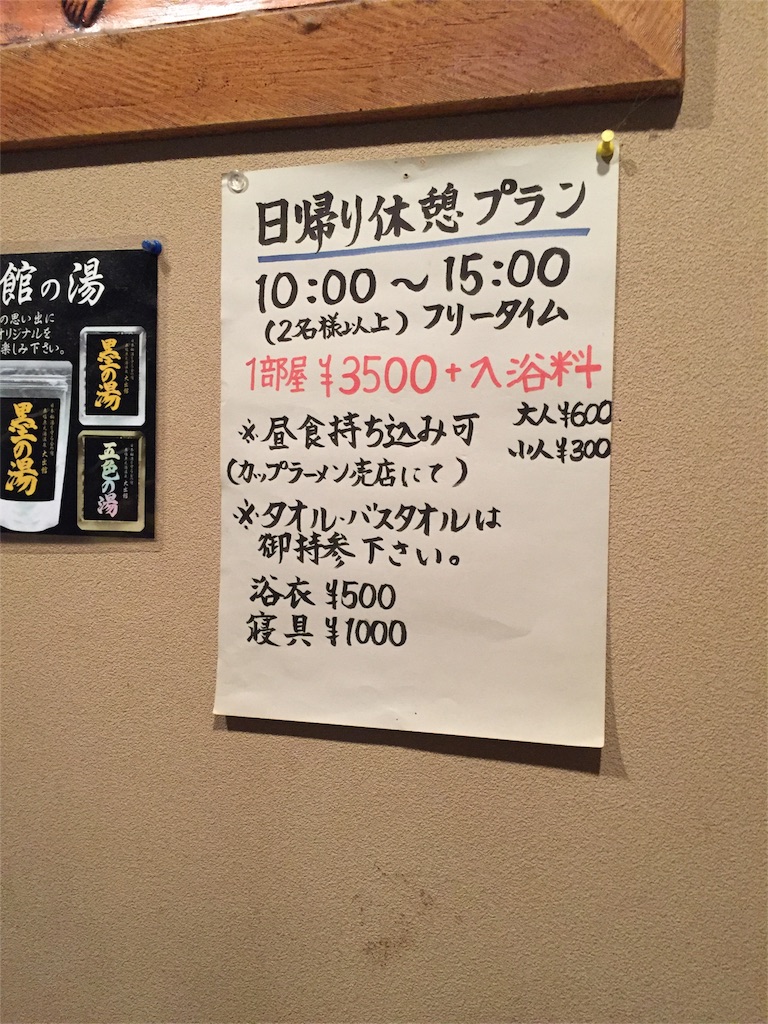 日帰り休憩プラン
10:00～15:00
(2名様以上) フリータイム
1部屋 ¥3500+入浴料
大人¥600
小人¥300
※昼食持ち込み可
(カップラーメン売店にて)
※タオル・バスタオルは
御持参下さい。
浴衣 ¥500
寝具 ¥1000
館の湯
の思い出に
オリジナルを
楽しみ下さい。
墨の湯
墨の湯
五色の湯